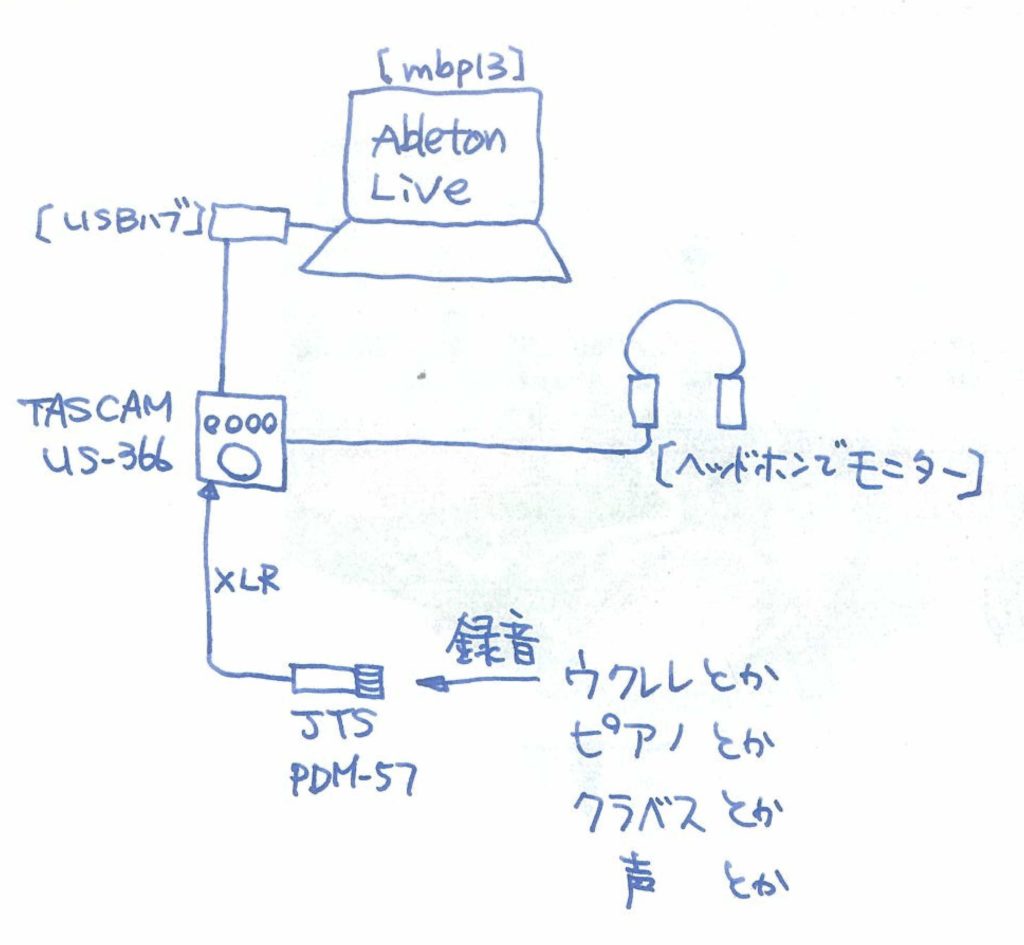 [mbp13]
Ableton
Live
[USBハブ]
TASCAM
US-366
[ヘッドホンでモニター]
XLR
録音
JTS
PDM-57
ウクレレとか
ピアノとか
クラベスとか
声 とか